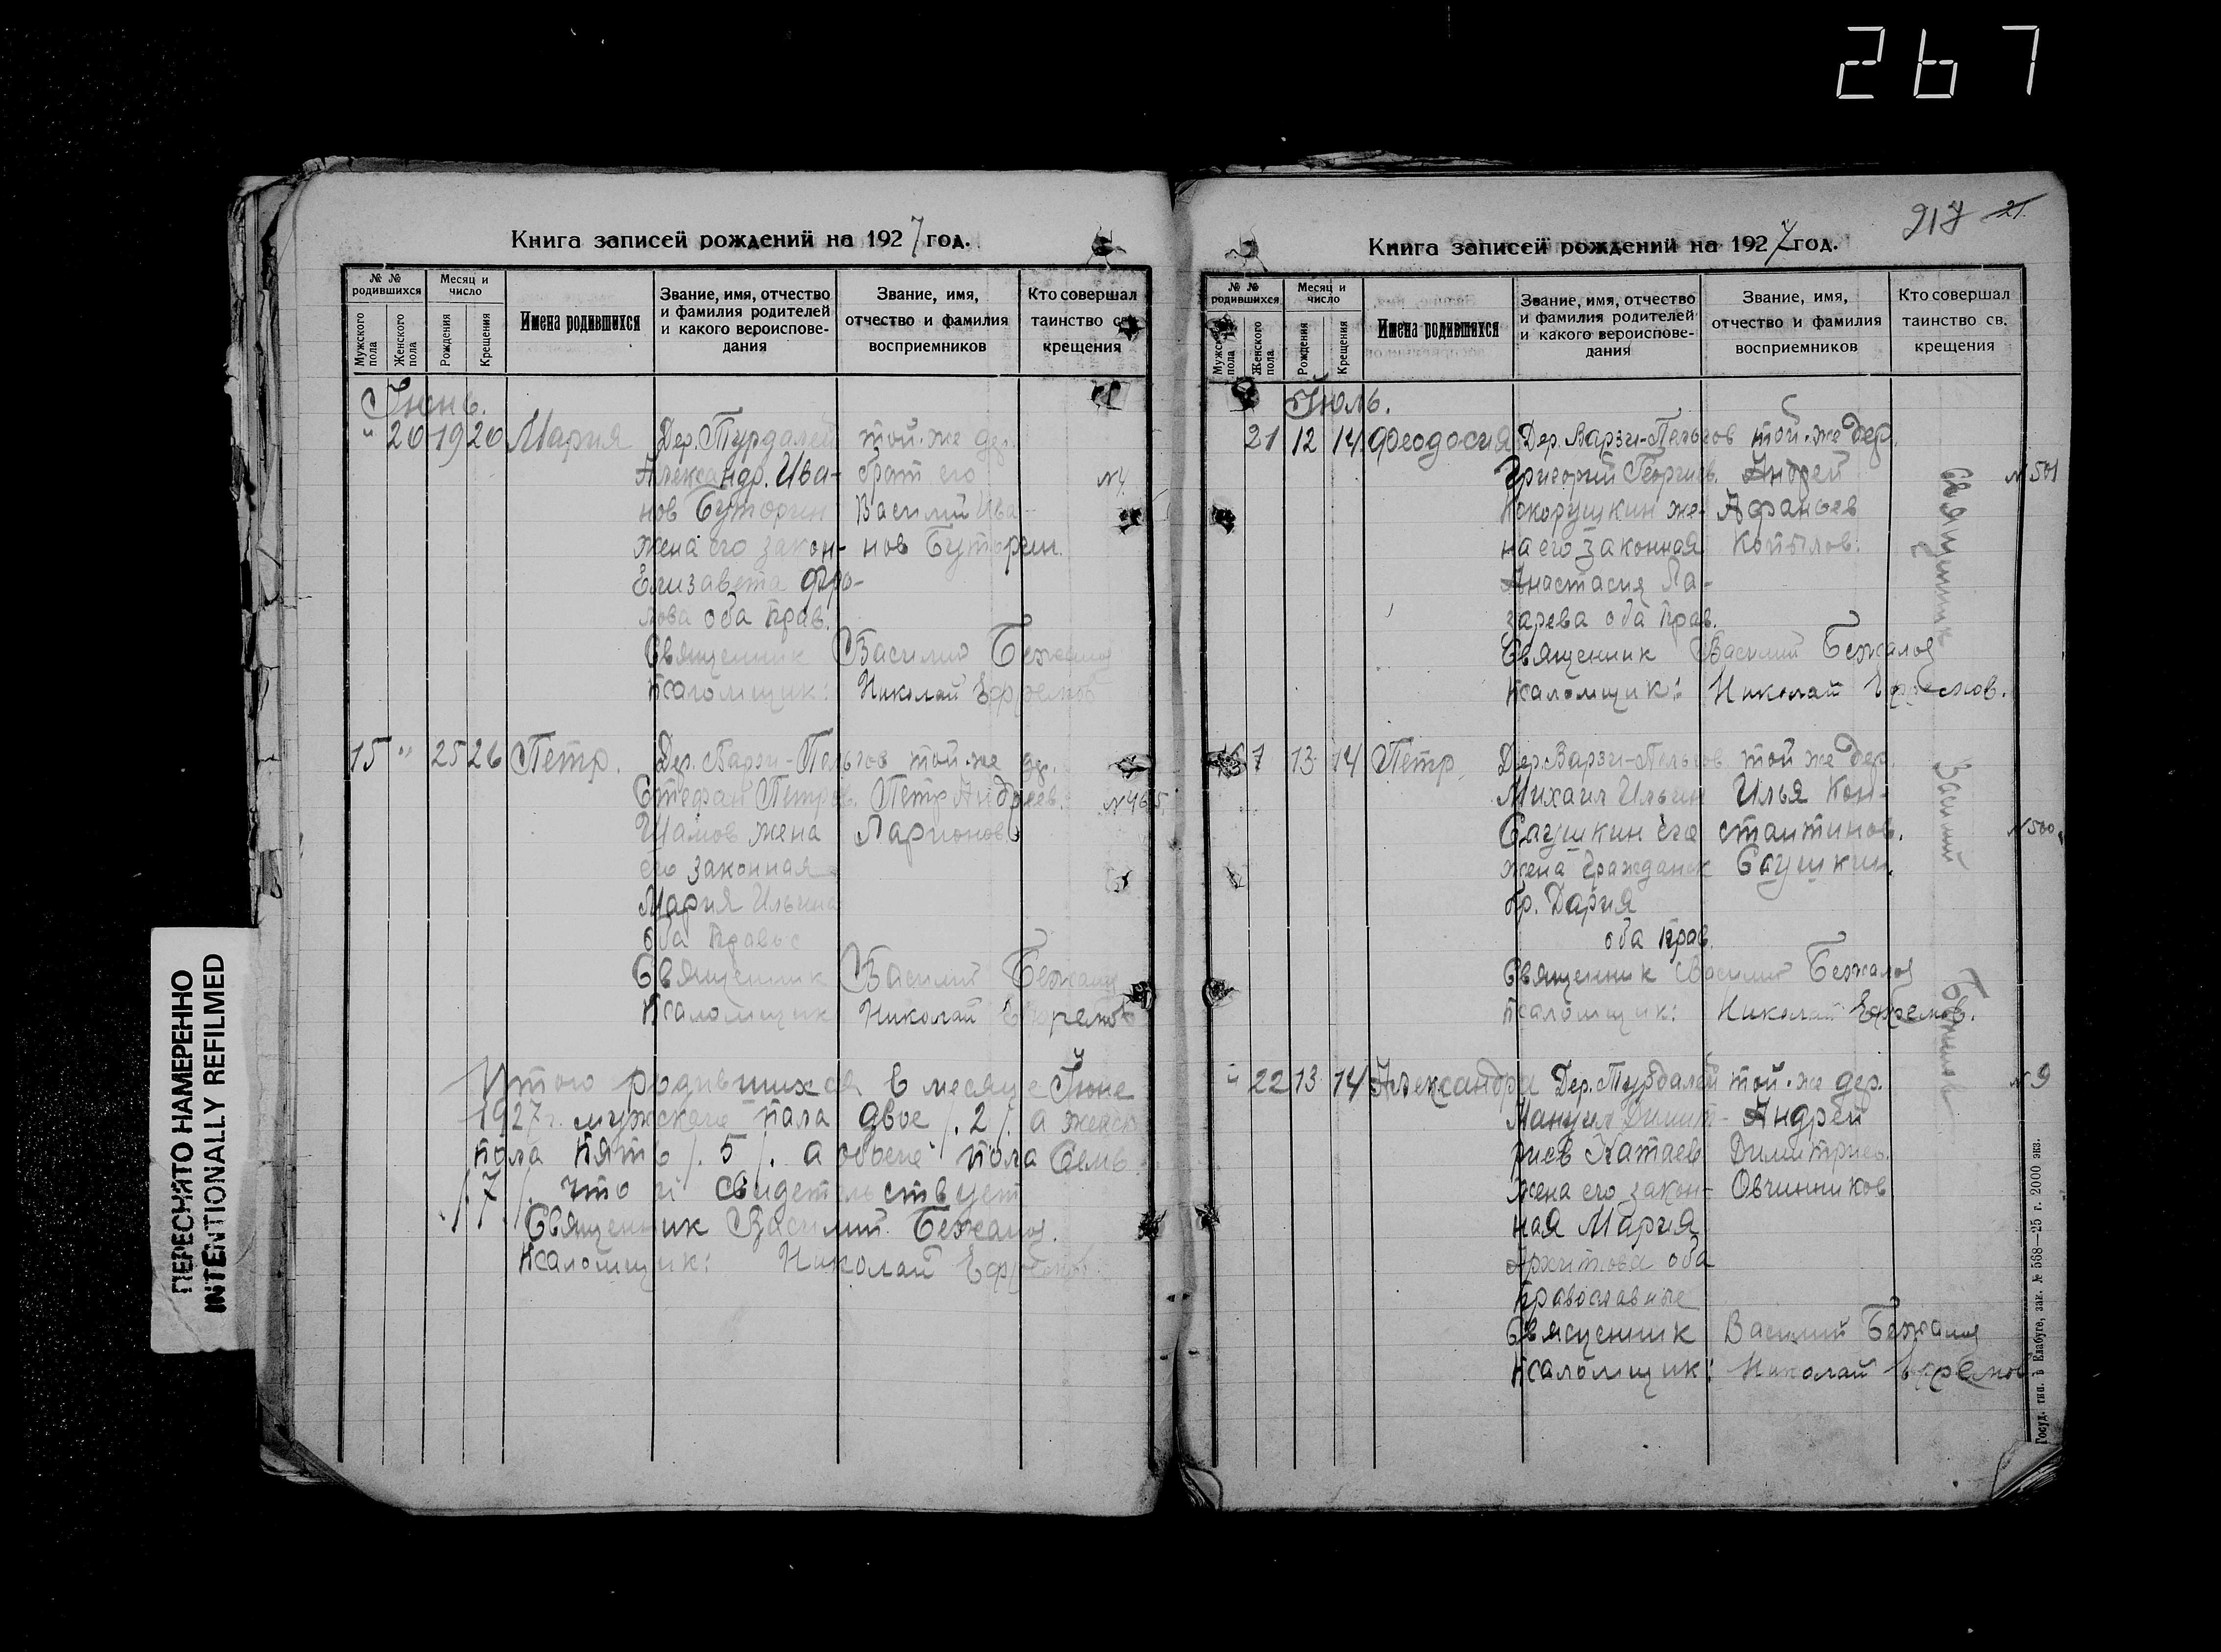 267
Книга записей рождений на 1927 год.
№ № родившихся
Мужского пола
Женского пола
Месяц и число
Рождения
Крещения
Имена родившихся
Звание, имя, отчество и фамилия родителей и какого вероисповедания
Звание, имя, отчество и фамилия восприемников
Кто совершал таинство св. крещения
Июнь.
" 20 19 20 Мария Дер. Турдалей той-же дер.
Александр. Ива- брат его №4
нов Буторин Василий Ива-
жена его закон- нов Буторин.
Елизавета Фро-
лова оба прав.
Священник Василий
Псаломщик: Николай Ефремов
15 " 25 26 Петр. Дер. Варзи-Пельгов той-же дер.
Стефан Петров. Петр Андреев. №465
Шамов жена Ларионов
его законная
Мария Ильина
оба правос
Священник Василий
Псаломщик Николай Ефремов
Итого родившихся в месяце Июне
1927 г. мужскаго пола двое /.2/. а женск
пола пять /.5/. а обоего пола семь
/.7/. что и свидетельствует
Священник Василий
Псаломщик: Николай Ефремов
ПЕРЕСНЯТО НАМЕРЕННО
INTENTIONALLY REFILMED
217 21.
Книга записей рождений на 1927 год.
№ № родившихся
Мужско пола
Женского пола
Месяц и число
Рождения
Крещения
Имена родившихся
Звание, имя, отчество и фамилия родителей и какого вероисповедания
Звание, имя, отчество и фамилия восприемников
Кто совершал таинство св. крещения
Июль.
21 12 14 Феодосия Дер. Варзи-Пельгов той-же дер.
Григорий Георгиев. Андрей №501
Кокорушкин же- Афаньев
на его законная Копылов.
Анастасия Ла-
зарева оба прав.
Священник Василий
Псаломщик: Николай Ефремов.
13 14 Петр. Дер. Варзи-Пельгов той же дер.
Михаил Ильин Илья Кон-
его стантинов. №500
жена гражданск
бр. Дария
оба прав.
Священник Василий
Псаломщик: Николай Ефремов.
" 22 13 14 Александра Дер. Турдалей той-же дер. №9
Мануил Димит- Андрей
риев Катаев Димитриев.
жена его закон- Овчинников
ная Мария
оба
православные
Священник Василий
Псаломщик: Николай Ефремов
Священник Василий
Госуд. тип. в Елабуге, зак. № 568—25 г. 2000 экз.